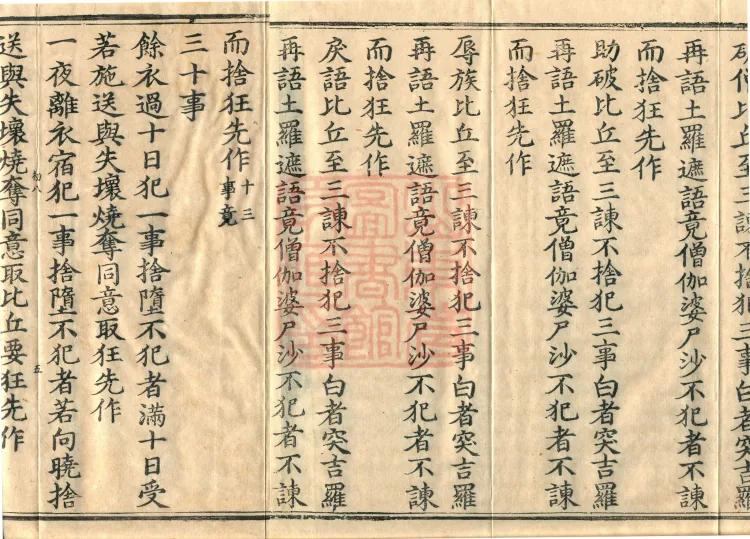 破僧比丘至三諫不捨犯三事白者突吉羅
再語土羅遮語竟僧伽婆尸沙不犯者不諫
而捨狂先作
助破比丘至三諫不捨犯三事白者突吉羅
再語土羅遮語竟僧伽婆尸沙不犯者不諫
而捨狂先作
辱族比丘至三諫不捨犯三事白者突吉羅
再語土羅遮語竟僧伽婆尸沙不犯者不諫
而捨狂先作
戾語比丘至三諫不捨犯三事白者突吉羅
再語土羅遮語竟僧伽婆尸沙不犯者不諫
而捨狂先作十三事竟
三十事
餘衣過十日犯一事捨墮不犯者滿十日受
若施送與失壞燒奪同意取狂先作
一夜離衣宿犯一事捨墮不犯者若向曉捨
五
送與失壞燒奪同意取比丘要狂先作